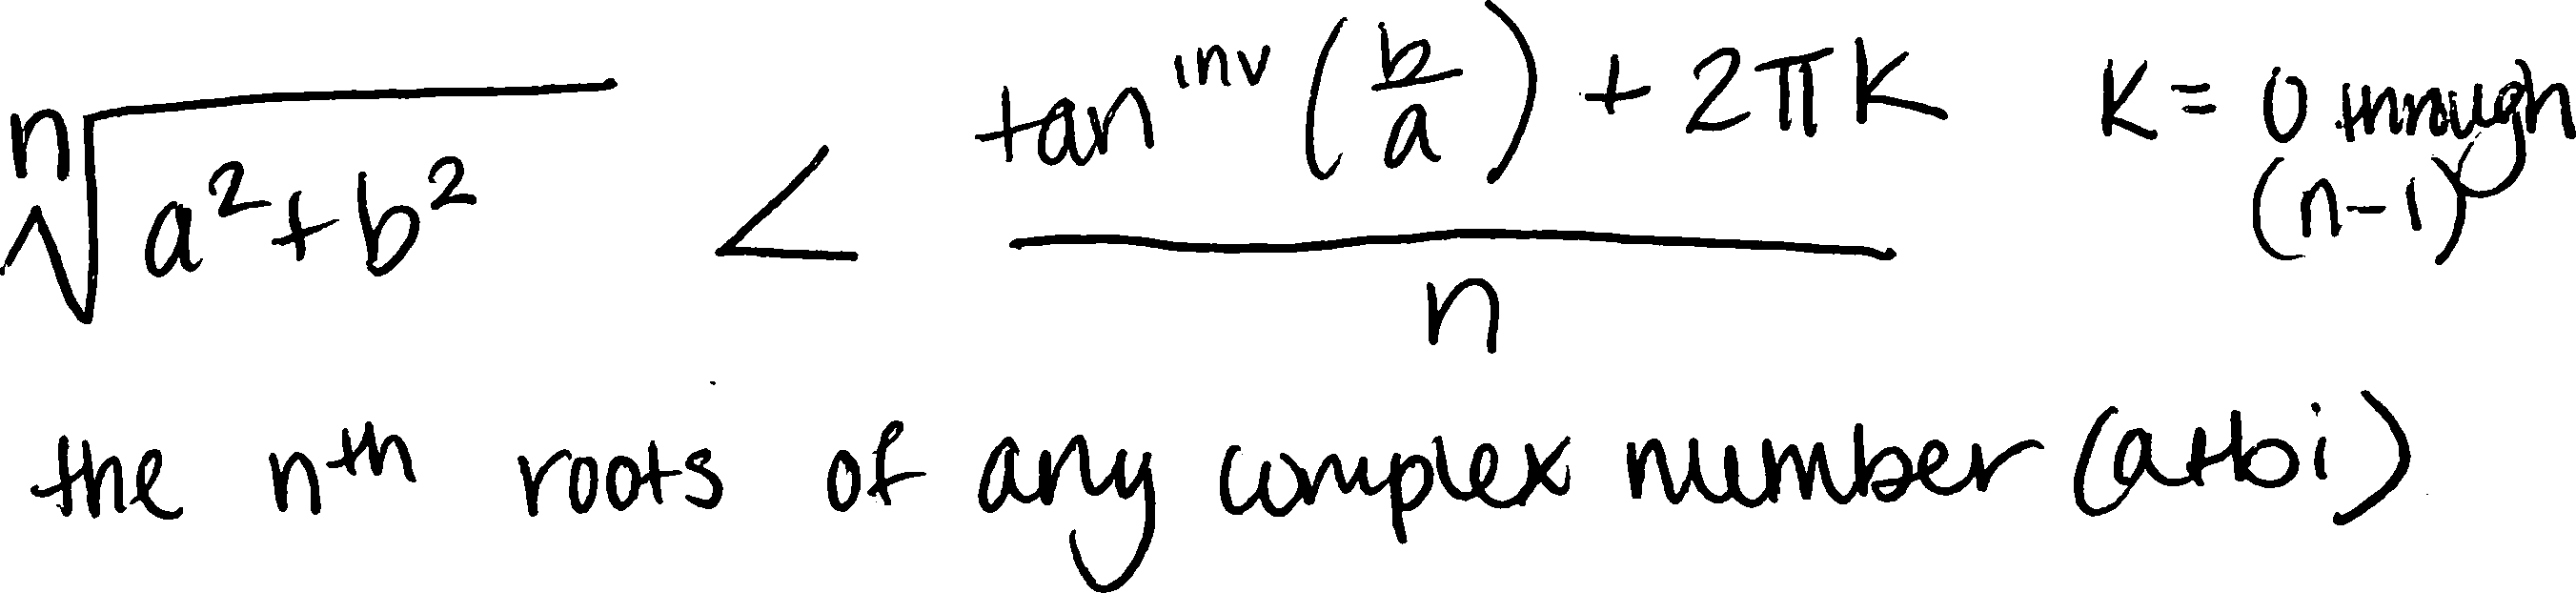 ⁿ√(a²+b²) ∠ (tan^inv (b/a) + 2πK)/n K = 0 through (n-1)
the nth roots of any complex number (a+bi)